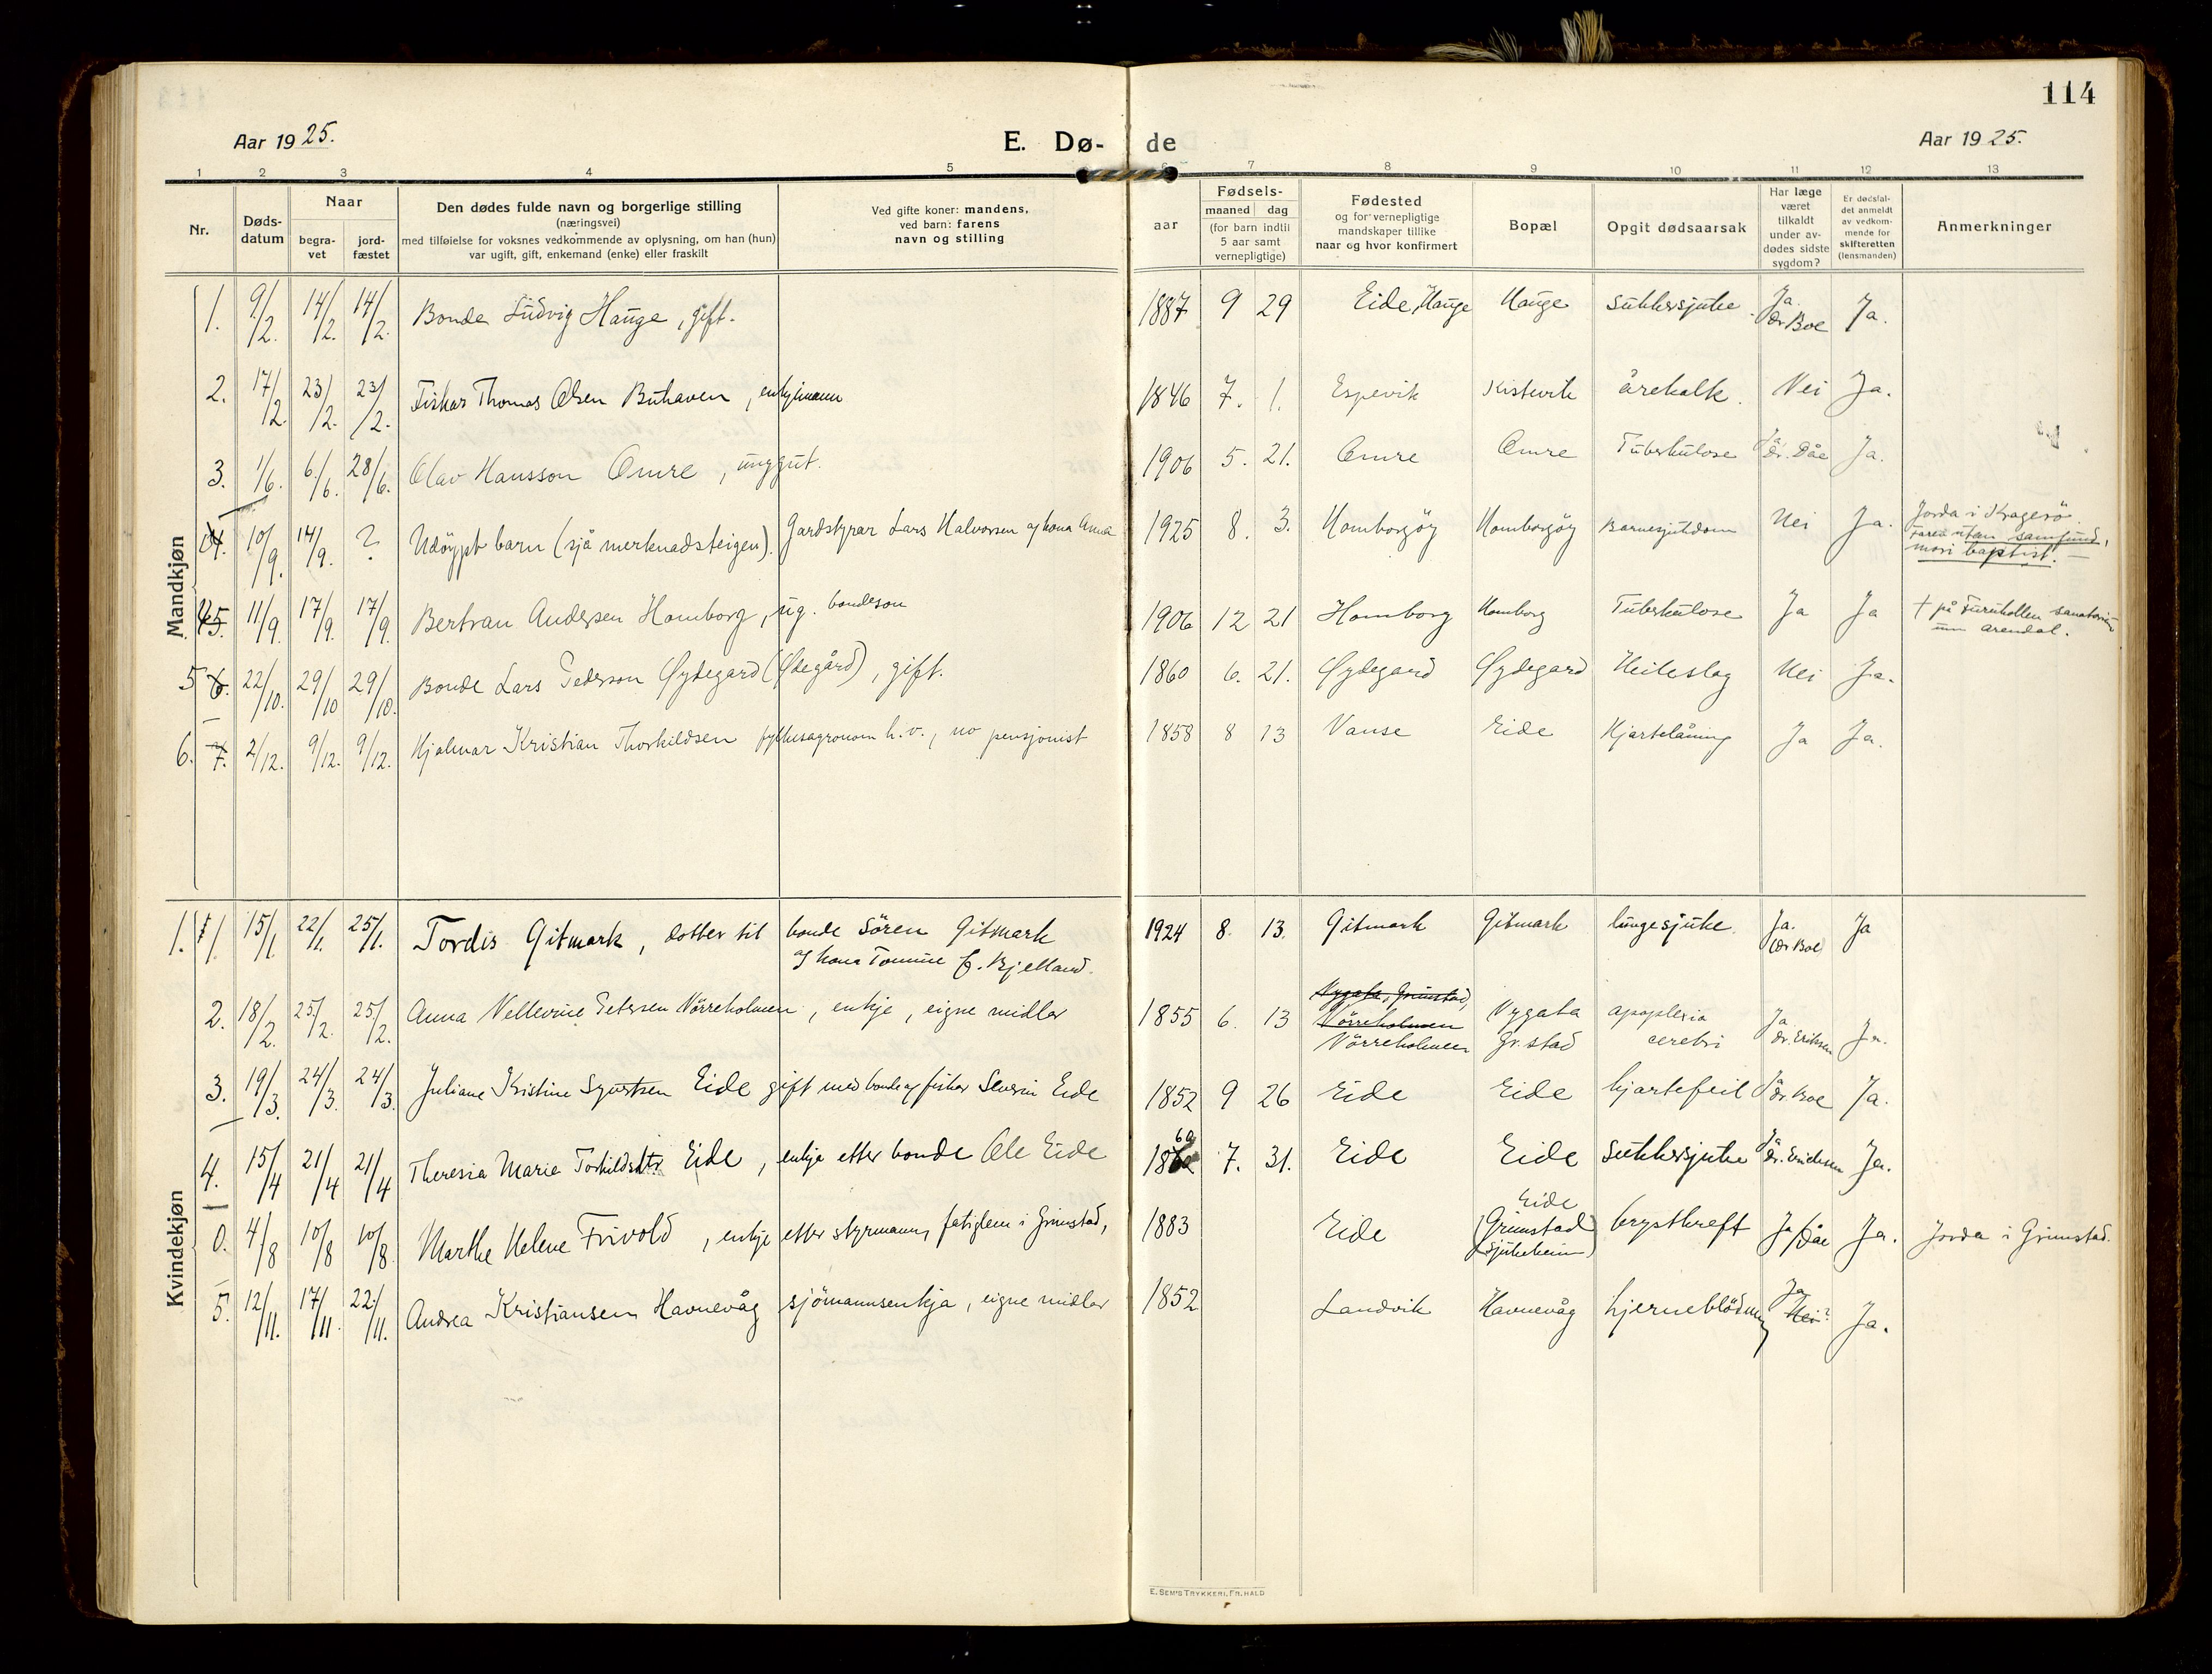 114
Aar 1925.
E. Dø-de
Aar 1925.
1 2 3 4 5 6 7 8 9 10 11 12 13
Nr.
Døds-
datum
Naar
begra-
vet
jord-
fæstet
Den dødes fulde navn og borgerlige stilling
(næringsvei)
med tilføielse for voksnes vedkommende av oplysning, om han (hun)
var ugift, gift, enkemand (enke) eller fraskilt
Ved gifte koner: mandens,
ved barn: farens
navn og stilling
Fødsels-
aar
maaned dag
(for barn indtil
5 aar samt
vernepligtige)
Fødested
og for vernepligtige
mandskaper tillike
naar og hvor konfirmert
Bopæl
Opgit dødsaarsak
Har læge
været
tilkaldt
under av-
dødes sidste
sygdom?
Er dødsfal-
det anmeldt
av vedkom-
mende for
skifteretten
(lensmanden)
Anmerkninger
Mandkjøn
1. 9/2. 14/2. 14/2. Bonde Ludvig Hauge, gift. 1887 9 29 Eide, Hauge Hauge Sukkersjuke. Ja. dr Boe Ja.
2. 17/2. 23/2. 23/2. Fiskar Thomas Olsen Buhaven, enkjimann 1846 7. 1. Espevik Kistevik årekalk. Nei Ja.
3. 1/6. 6/6. 28/6. Olav Hansson Omre, unggut. 1906 5. 21. Omre Omre Tuberkulose Ja dr. Dåe Ja.
10/9. 14/9. ? Udøypt barn (sjå merknadsteigen). Gardstyrar Lars Halvorsen og kona Anna 1925 8. 3. Homborgøy Homborgøy Barnesjukdom Nei Ja. Jorda i Kragerø.
Faren utan samfund,
mori baptist.
11/9. 17/9. 17/9. Bertran Andersen Homborg, ug. bondeson 1906 12 21 Homborg Homborg Tuberkulose Ja Ja † på Furuhollen sanatorium
um Arendal.
5 6. 22/10. 29/10 29/10. Bonde Lars Pederson Øydegard (Ødegård), gift. 1860 6. 21. Øydegard Øydegard Heileslag Nei Ja.
6. 7. 2/12. 9/12. 9/12. Hjalmar Kristian Thorkildsen fylkesagronom h.v., no pensjonist 1858 8 13 Vanse Eide Hjartelåming Ja Ja.
Kvindekjøn
1. 1 15/1. 22/1. 25/1. Tordis Gitmark, dotter til bonde Søren Gitmark
og kona Tomine f. Bjelland. 1924 8. 13. Gitmark Gitmark lungesjuke. Ja. (dr Boe) Ja
2. 18/2. 25/2. 25/2. Anna Nellevine Petersen Nörreholmen, enkje, eigne midlar 1855 6. 13 Vygata, Grimstad,
Nörreholmen
Nörreholmen Vygata
Gr.stad apoplexia
cerebri Ja dr. Eriksen Ja.
3. 19/3. 24/3. 24/3. Juliane Kristine Syvertsen Eide gift med bonde og fiskar Severin Eide 1852 9 26 Eide Eide hjartefeil Ja dr Boe Ja.
4. 15/4 21/4 21/4 Theresia Marie Torkildsdtr Eide, enkje etter bonde Ole Eide 18 7. 31. Eide Eide Sukkersjuke Ja dr. Ericksen Ja.
0. 4/8 10/8 10/8 Marthe Helene Frivold, enkje etter styrmann, fatiglem i Grimstad, 1883 Eide Eide
(Grimstad
sjukeheim) brystkreft Ja/Dåe Ja. Jorda i Grimstad.
5. 12/11. 17/11. 22/11. Andrea Kristiansen Havnevåg sjømannsenkja, eigne midlar 1852 Landvik Havnevåg hjerneblødning Ja Nei? Ja.
E. SEM'S TRYKKERI, FR. HALD